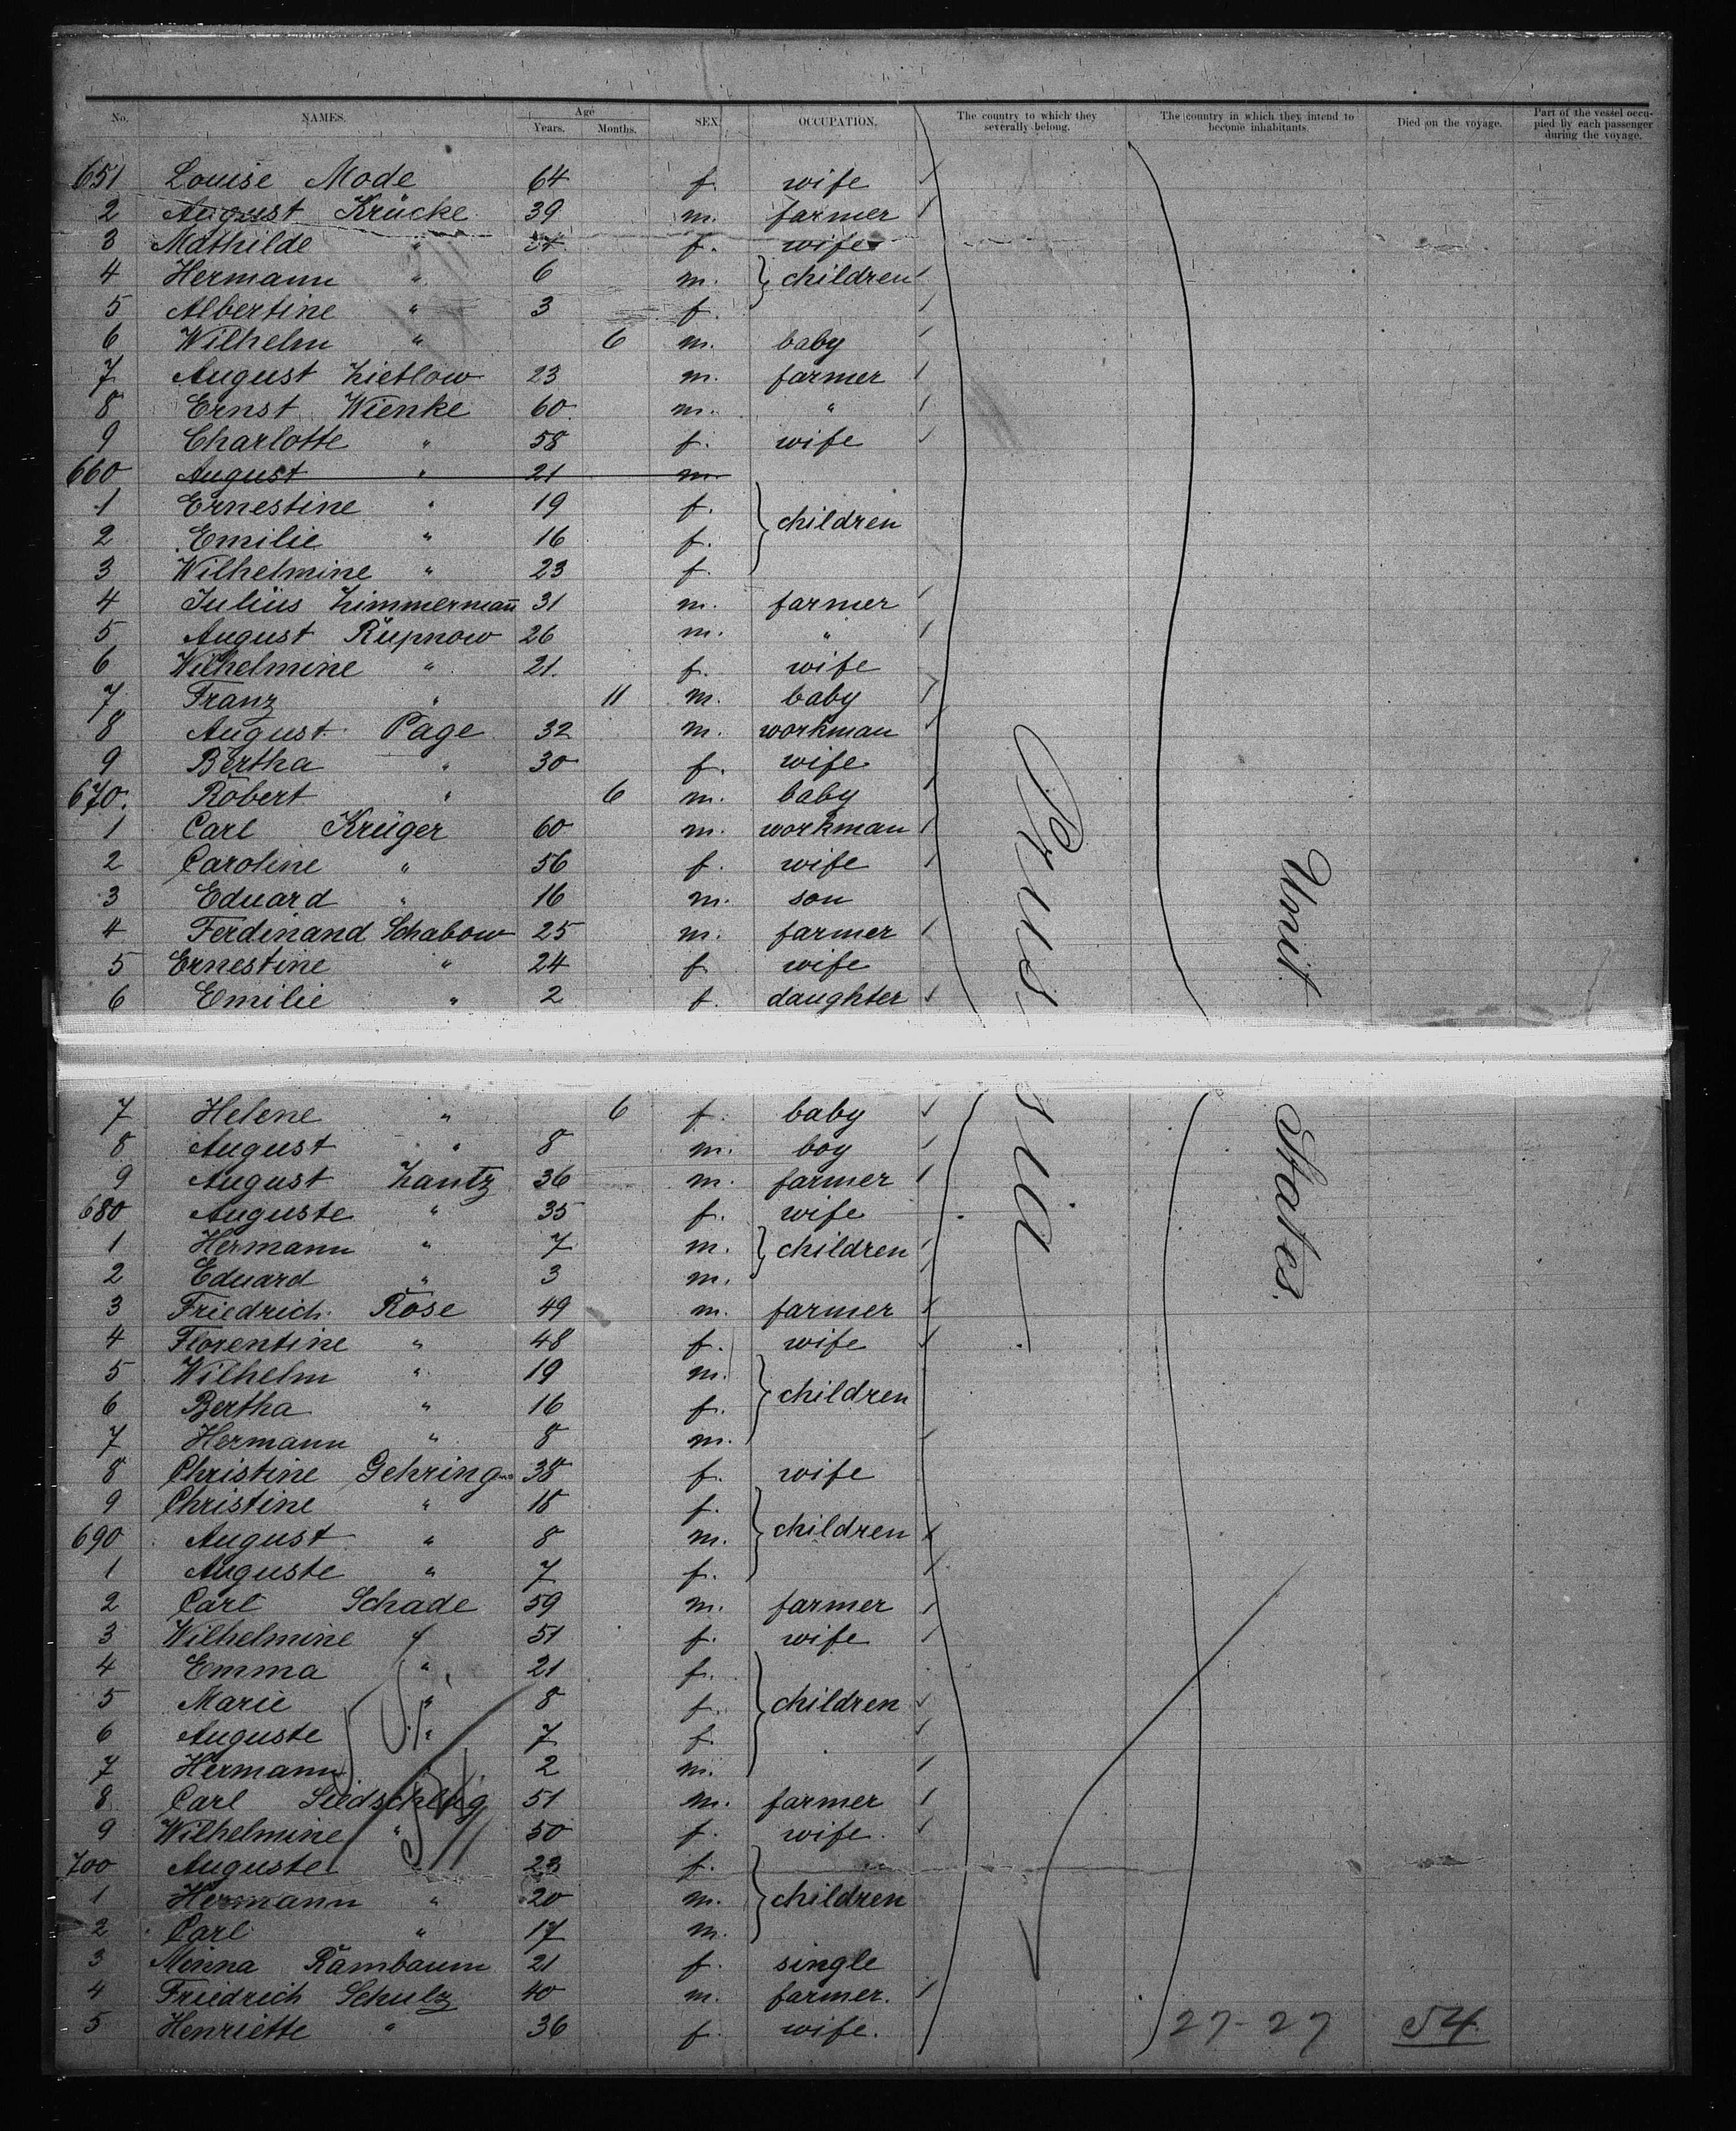 No. NAMES. Age Years. Months. SEX OCCUPATION. The country to which they severally belong. The country in which they intend to become inhabitants. Died on the voyage. Part of the vessel occupied by each passenger during the voyage.
651 Louise Mode 64 f. wife
2 August Krücke 39 m. farmer
3 Mathilde " f. wife
4 Hermann " 6 m. children
5 Albertine " 3 f.
6 Wilhelm " 6 m. baby
7 August Zietlow 23 m. farmer
8 Ernst Wienke 60 m. "
9 Charlotte " 58 f. wife
660 August " 21 m.
1 Ernestine " 19 f. children
2 Emilie " 16 f.
3 Wilhelmine " 23 f.
4 Julius Zimmermañ 31 m. farmer
5 August Rupnow 26 m. "
6 Wilhelmine " 21. f. wife
7 Franz " 11 m. baby
8 August Page 32 m. workman
9 Bertha " 30 f. wife
670. Robert " 6 m. baby
1 Carl Krüger 60 m. workman
2 Caroline " 56 f. wife
3 Eduard " 16 m. son
4 Ferdinand Schabow 25 m. farmer
5 Ernestine " 24 f. wife
6 Emilie " 2 f. daughter
Prussia
Unit. States.
7 Helene " 6 f. baby
8 August " 8 m. boy
9 August Zantz 36 m. farmer
680 Auguste " 35 f. wife
1 Hermann " 7 m. children
2 Eduard " 3 m.
3 Friedrich Rose 49 m. farmer
4 Florentine " 48 f. wife
5 Wilhelm " 19 m. children
6 Bertha " 16 f.
7 Hermann " 8 m.
8 Christine Gehring 38 f. wife
9 Christine " f. children
690 August " 8 m.
1 Auguste " 7 f.
2 Carl Schade 59 m. farmer
3 Wilhelmine " 51 f. wife
4 Emma " 21 f. children
5 Marie " 8 f.
6 Auguste " 7 f.
7 Hermann 2 m.
8 Carl 51 m. farmer
9 Wilhelmine " 50 f. wife.
700 Auguste 23 f. children
1 Hermann " 20 m.
2 Carl " 17 m.
3 Minna Rambaum 21 f. single
4 Friedrich Schulz 40 m. farmer.
5 Henriette " 36 f. wife.
27-27 54